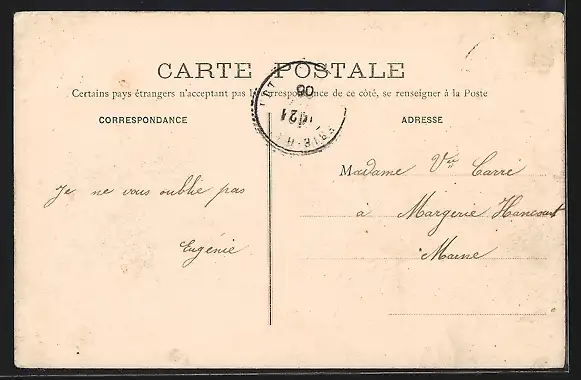 CARTE POSTALE
Certains pays étrangers n'acceptant pas la correspondance de ce côté, se renseigner à la Poste
CORRESPONDANCE
Je ne vous oublie pas
Eugénie
ADRESSE
Madame Vve Carré
à Margerie Hancourt
Marne
21
08